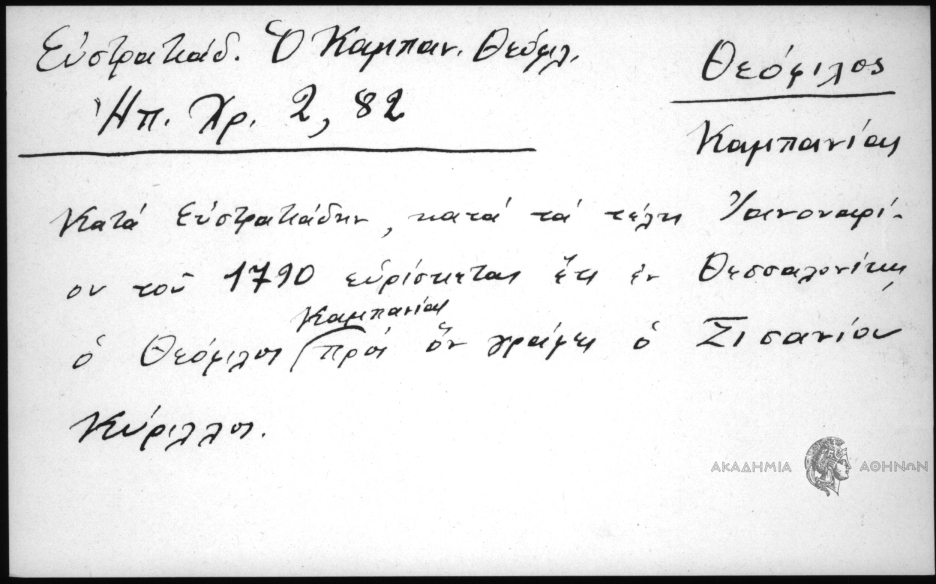 Εὐστρατιάδ. Ὁ Καμπαν. Θεόφιλ.
Ἠπ. Χρ. 2, 82
Θεόφιλος
Καμπανίας
Κατά Εὐστρατιάδην, κατά τά τέλη Ἰανουαρί-
ου τοῦ 1790 εὑρίσκεται ἔτι ἐν Θεσσαλονίκῃ
Καμπανίας
ὁ Θεόφιλος (πρός ὅν γράφει ὁ Σισανίου
Κύριλλος.
ΑΚΑΔΗΜΙΑ ΑΘΗΝΩΝ